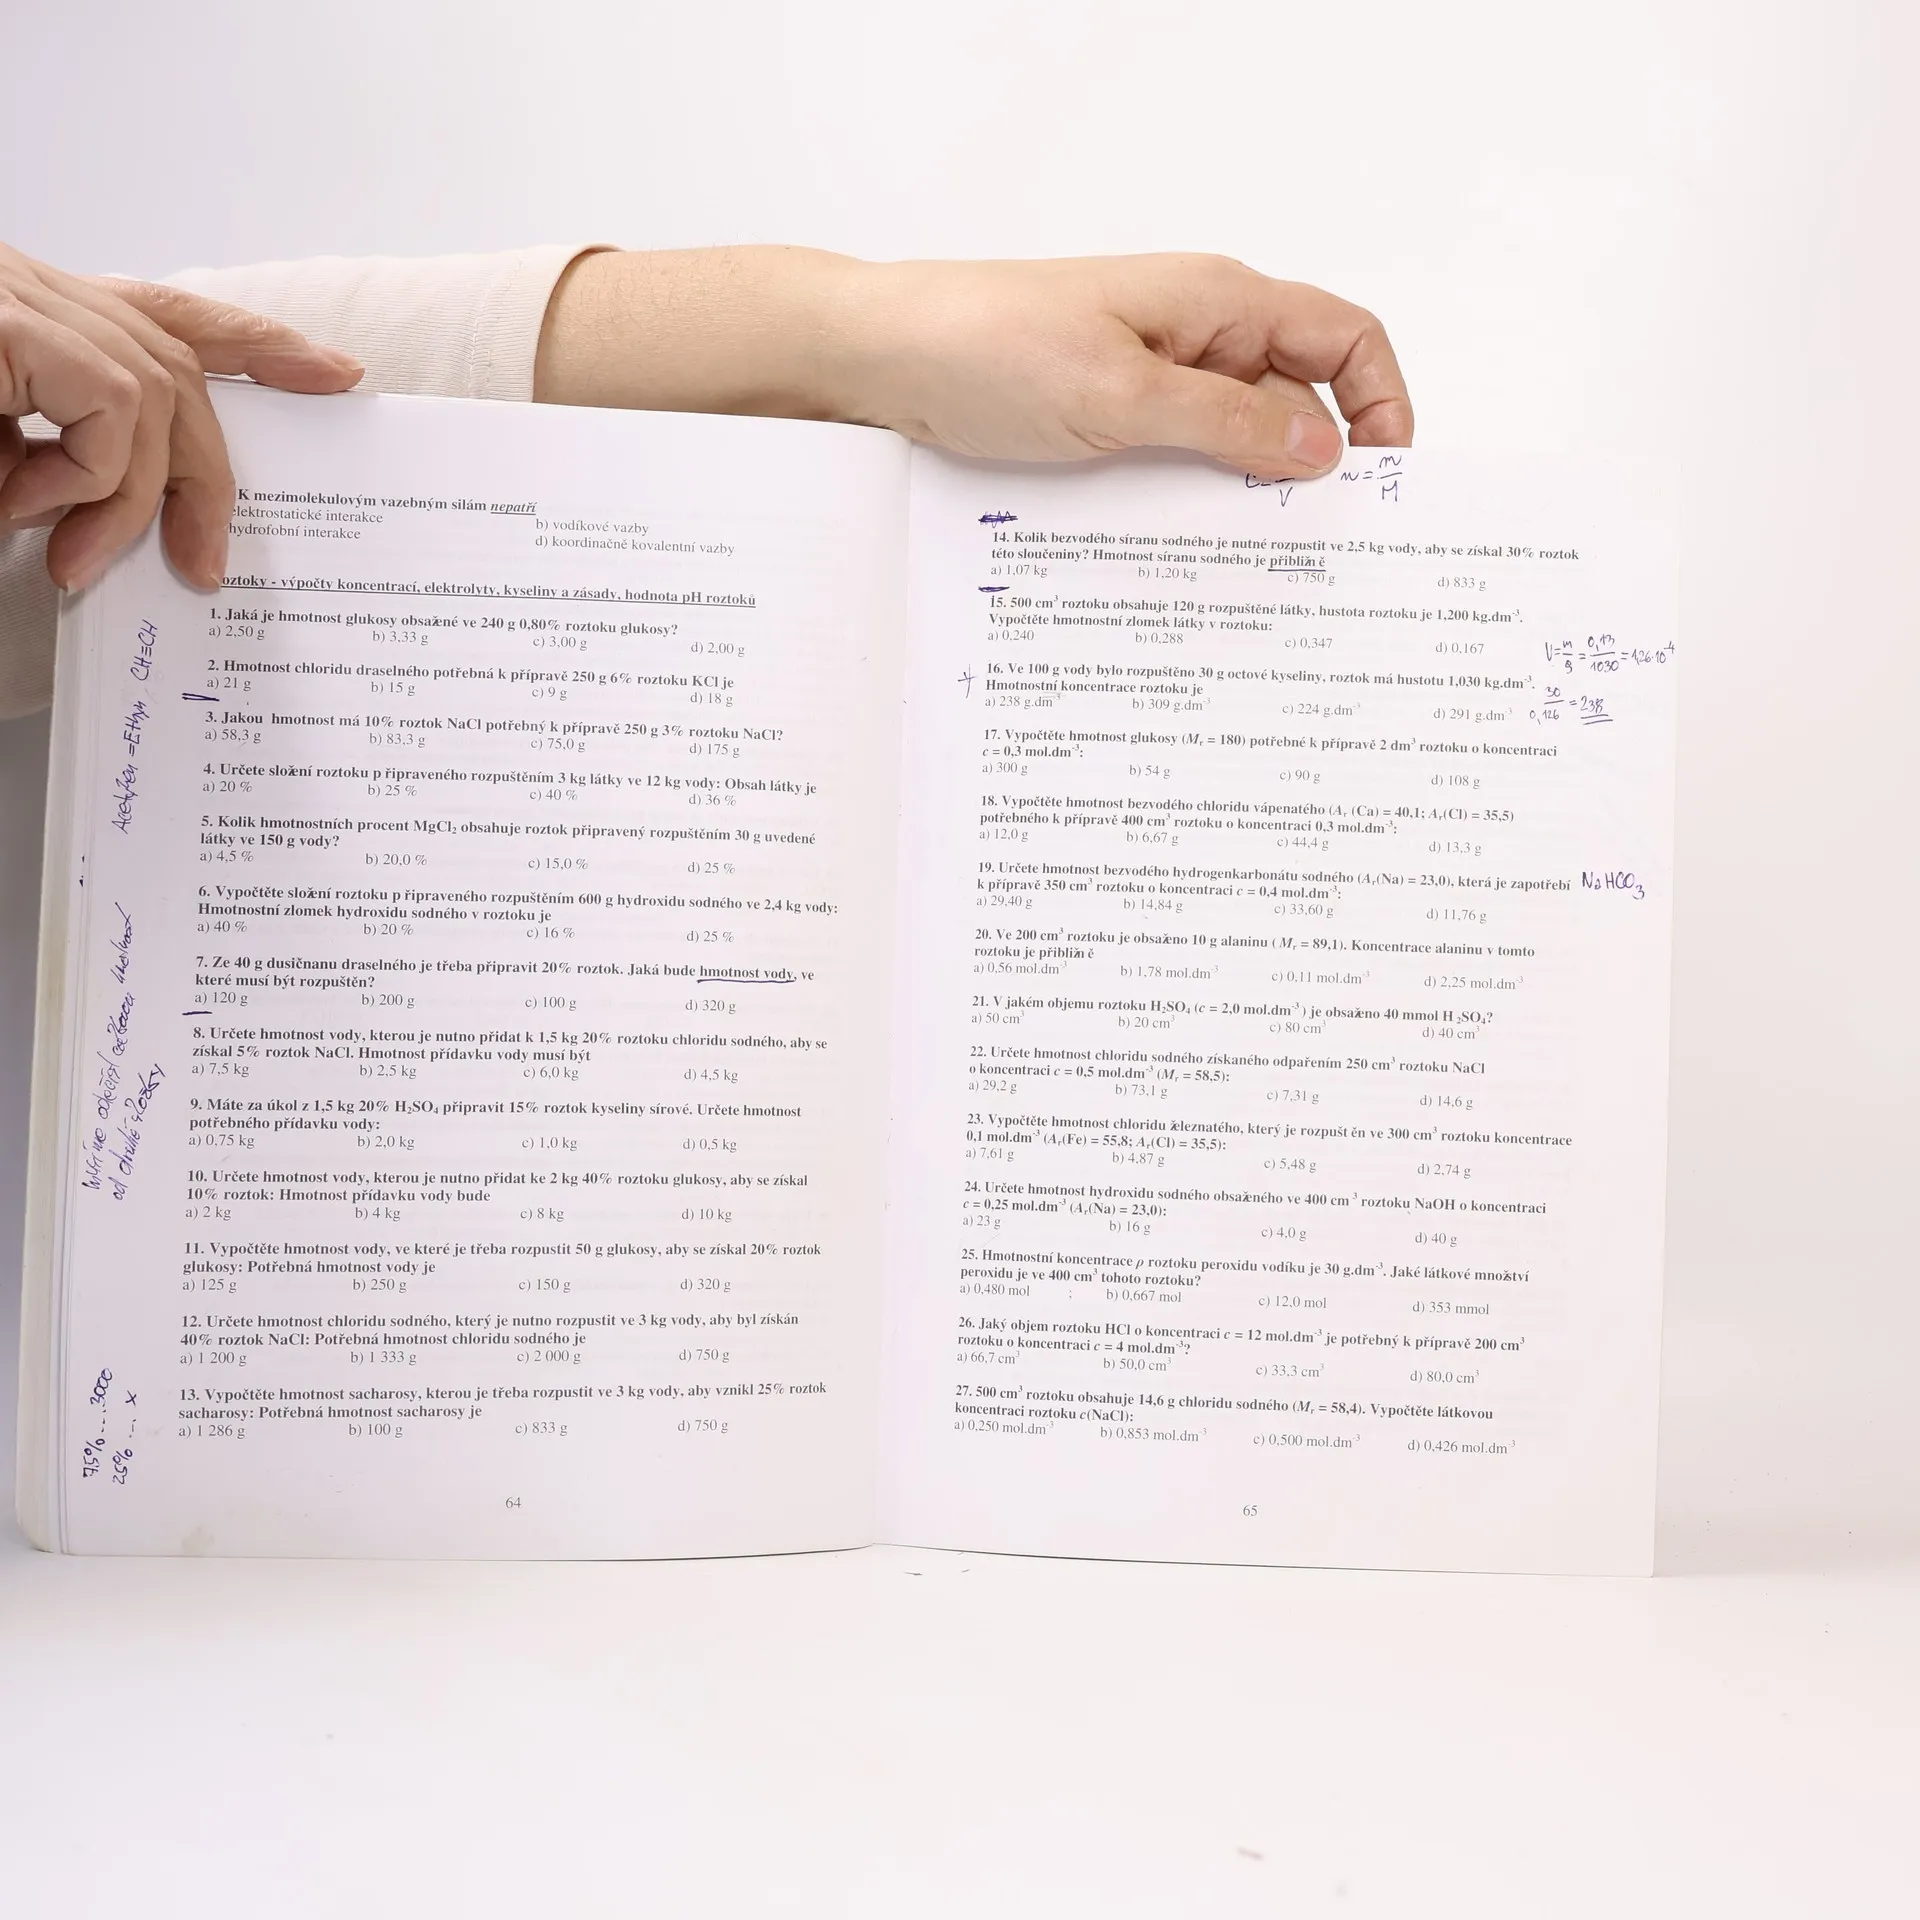 K mezimolekulovým vazebným silám nepatří
elektrostatické interakce b) vodíkové vazby
hydrofobní interakce d) koordinačně kovalentní vazby
oztoky - výpočty koncentrací, elektrolyty, kyseliny a zásady, hodnota pH roztoků
1. Jaká je hmotnost glukosy obsažené ve 240 g 0,80% roztoku glukosy?
a) 2,50 g b) 3,33 g c) 3,00 g d) 2,00 g
2. Hmotnost chloridu draselného potřebná k přípravě 250 g 6% roztoku KCl je
a) 21 g b) 15 g c) 9 g d) 18 g
3. Jakou hmotnost má 10% roztok NaCl potřebný k přípravě 250 g 3% roztoku NaCl?
a) 58,3 g b) 83,3 g c) 75,0 g d) 175 g
4. Určete složení roztoku p řipraveného rozpuštěním 3 kg látky ve 12 kg vody: Obsah látky je
a) 20 % b) 25 % c) 40 % d) 36 %
5. Kolik hmotnostních procent MgCl₂ obsahuje roztok připravený rozpuštěním 30 g uvedené
látky ve 150 g vody?
a) 4,5 % b) 20,0 % c) 15,0 % d) 25 %
6. Vypočtěte složení roztoku p řipraveného rozpuštěním 600 g hydroxidu sodného ve 2,4 kg vody:
Hmotnostní zlomek hydroxidu sodného v roztoku je
a) 40 % b) 20 % c) 16 % d) 25 %
7. Ze 40 g dusičnanu draselného je třeba připravit 20% roztok. Jaká bude hmotnost vody, ve
které musí být rozpuštěn?
a) 120 g b) 200 g c) 100 g d) 320 g
8. Určete hmotnost vody, kterou je nutno přidat k 1,5 kg 20% roztoku chloridu sodného, aby se
získal 5% roztok NaCl. Hmotnost přídavku vody musí být
a) 7,5 kg b) 2,5 kg c) 6,0 kg d) 4,5 kg
9. Máte za úkol z 1,5 kg 20% H₂SO₄ připravit 15% roztok kyseliny sírové. Určete hmotnost
potřebného přídavku vody:
a) 0,75 kg b) 2,0 kg c) 1,0 kg d) 0,5 kg
10. Určete hmotnost vody, kterou je nutno přidat ke 2 kg 40% roztoku glukosy, aby se získal
10% roztok: Hmotnost přídavku vody bude
a) 2 kg b) 4 kg c) 8 kg d) 10 kg
11. Vypočtěte hmotnost vody, ve které je třeba rozpustit 50 g glukosy, aby se získal 20% roztok
glukosy: Potřebná hmotnost vody je
a) 125 g b) 250 g c) 150 g d) 320 g
12. Určete hmotnost chloridu sodného, který je nutno rozpustit ve 3 kg vody, aby byl získán
40% roztok NaCl: Potřebná hmotnost chloridu sodného je
a) 1 200 g b) 1 333 g c) 2 000 g d) 750 g
13. Vypočtěte hmotnost sacharosy, kterou je třeba rozpustit ve 3 kg vody, aby vznikl 25% roztok
sacharosy: Potřebná hmotnost sacharosy je
a) 1 286 g b) 100 g c) 833 g d) 750 g
64
Acetylen = Ethyn CH≡CH
od druhé
75% .... 3000
25% ... x
n = m/M
14. Kolik bezvodého síranu sodného je nutné rozpustit ve 2,5 kg vody, aby se získal 30% roztok
této sloučeniny? Hmotnost síranu sodného je přibližn ě
a) 1,07 kg b) 1,20 kg c) 750 g d) 833 g
15. 500 cm³ roztoku obsahuje 120 g rozpuštěné látky, hustota roztoku je 1,200 kg.dm⁻³.
Vypočtěte hmotnostní zlomek látky v roztoku:
a) 0,240 b) 0,288 c) 0,347 d) 0,167
V = m/ρ = 0,13/1030 = 1,26·10⁻⁴
16. Ve 100 g vody bylo rozpuštěno 30 g octové kyseliny, roztok má hustotu 1,030 kg.dm⁻³.
Hmotnostní koncentrace roztoku je
a) 238 g.dm⁻³ b) 309 g.dm⁻³ c) 224 g.dm⁻³ d) 291 g.dm⁻³
30/0,126 = 238
17. Vypočtěte hmotnost glukosy (Mᵣ = 180) potřebné k přípravě 2 dm³ roztoku o koncentraci
c = 0,3 mol.dm⁻³:
a) 300 g b) 54 g c) 90 g d) 108 g
18. Vypočtěte hmotnost bezvodého chloridu vápenatého (Aᵣ (Ca) = 40,1; Aᵣ(Cl) = 35,5)
potřebného k přípravě 400 cm³ roztoku o koncentraci 0,3 mol.dm⁻³:
a) 12,0 g b) 6,67 g c) 44,4 g d) 13,3 g
19. Určete hmotnost bezvodého hydrogenkarbonátu sodného (Aᵣ(Na) = 23,0), která je zapotřebí NaHCO₃
k přípravě 350 cm³ roztoku o koncentraci c = 0,4 mol.dm⁻³:
a) 29,40 g b) 14,84 g c) 33,60 g d) 11,76 g
20. Ve 200 cm³ roztoku je obsaženo 10 g alaninu ( Mᵣ = 89,1). Koncentrace alaninu v tomto
roztoku je přibližn ě
a) 0,56 mol.dm⁻³ b) 1,78 mol.dm⁻³ c) 0,11 mol.dm⁻³ d) 2,25 mol.dm⁻³
21. V jakém objemu roztoku H₂SO₄ (c = 2,0 mol.dm⁻³ ) je obsaženo 40 mmol H ₂SO₄?
a) 50 cm³ b) 20 cm³ c) 80 cm³ d) 40 cm³
22. Určete hmotnost chloridu sodného získaného odpařením 250 cm³ roztoku NaCl
o koncentraci c = 0,5 mol.dm⁻³ (Mᵣ = 58,5):
a) 29,2 g b) 73,1 g c) 7,31 g d) 14,6 g
23. Vypočtěte hmotnost chloridu železnatého, který je rozpušt ěn ve 300 cm³ roztoku koncentrace
0,1 mol.dm⁻³ (Aᵣ(Fe) = 55,8; Aᵣ(Cl) = 35,5):
a) 7,61 g b) 4,87 g c) 5,48 g d) 2,74 g
24. Určete hmotnost hydroxidu sodného obsaženého ve 400 cm ³ roztoku NaOH o koncentraci
c = 0,25 mol.dm⁻³ (Aᵣ(Na) = 23,0):
a) 23 g b) 16 g c) 4,0 g d) 40 g
25. Hmotnostní koncentrace ρ roztoku peroxidu vodíku je 30 g.dm⁻³. Jaké látkové množství
peroxidu je ve 400 cm³ tohoto roztoku?
a) 0,480 mol b) 0,667 mol c) 12,0 mol d) 353 mmol
26. Jaký objem roztoku HCl o koncentraci c = 12 mol.dm⁻³ je potřebný k přípravě 200 cm³
roztoku o koncentraci c = 4 mol.dm⁻³?
a) 66,7 cm³ b) 50,0 cm³ c) 33,3 cm³ d) 80,0 cm³
27. 500 cm³ roztoku obsahuje 14,6 g chloridu sodného (Mᵣ = 58,4). Vypočtěte látkovou
koncentraci roztoku c(NaCl):
a) 0,250 mol.dm⁻³ b) 0,853 mol.dm⁻³ c) 0,500 mol.dm⁻³ d) 0,426 mol.dm⁻³
65